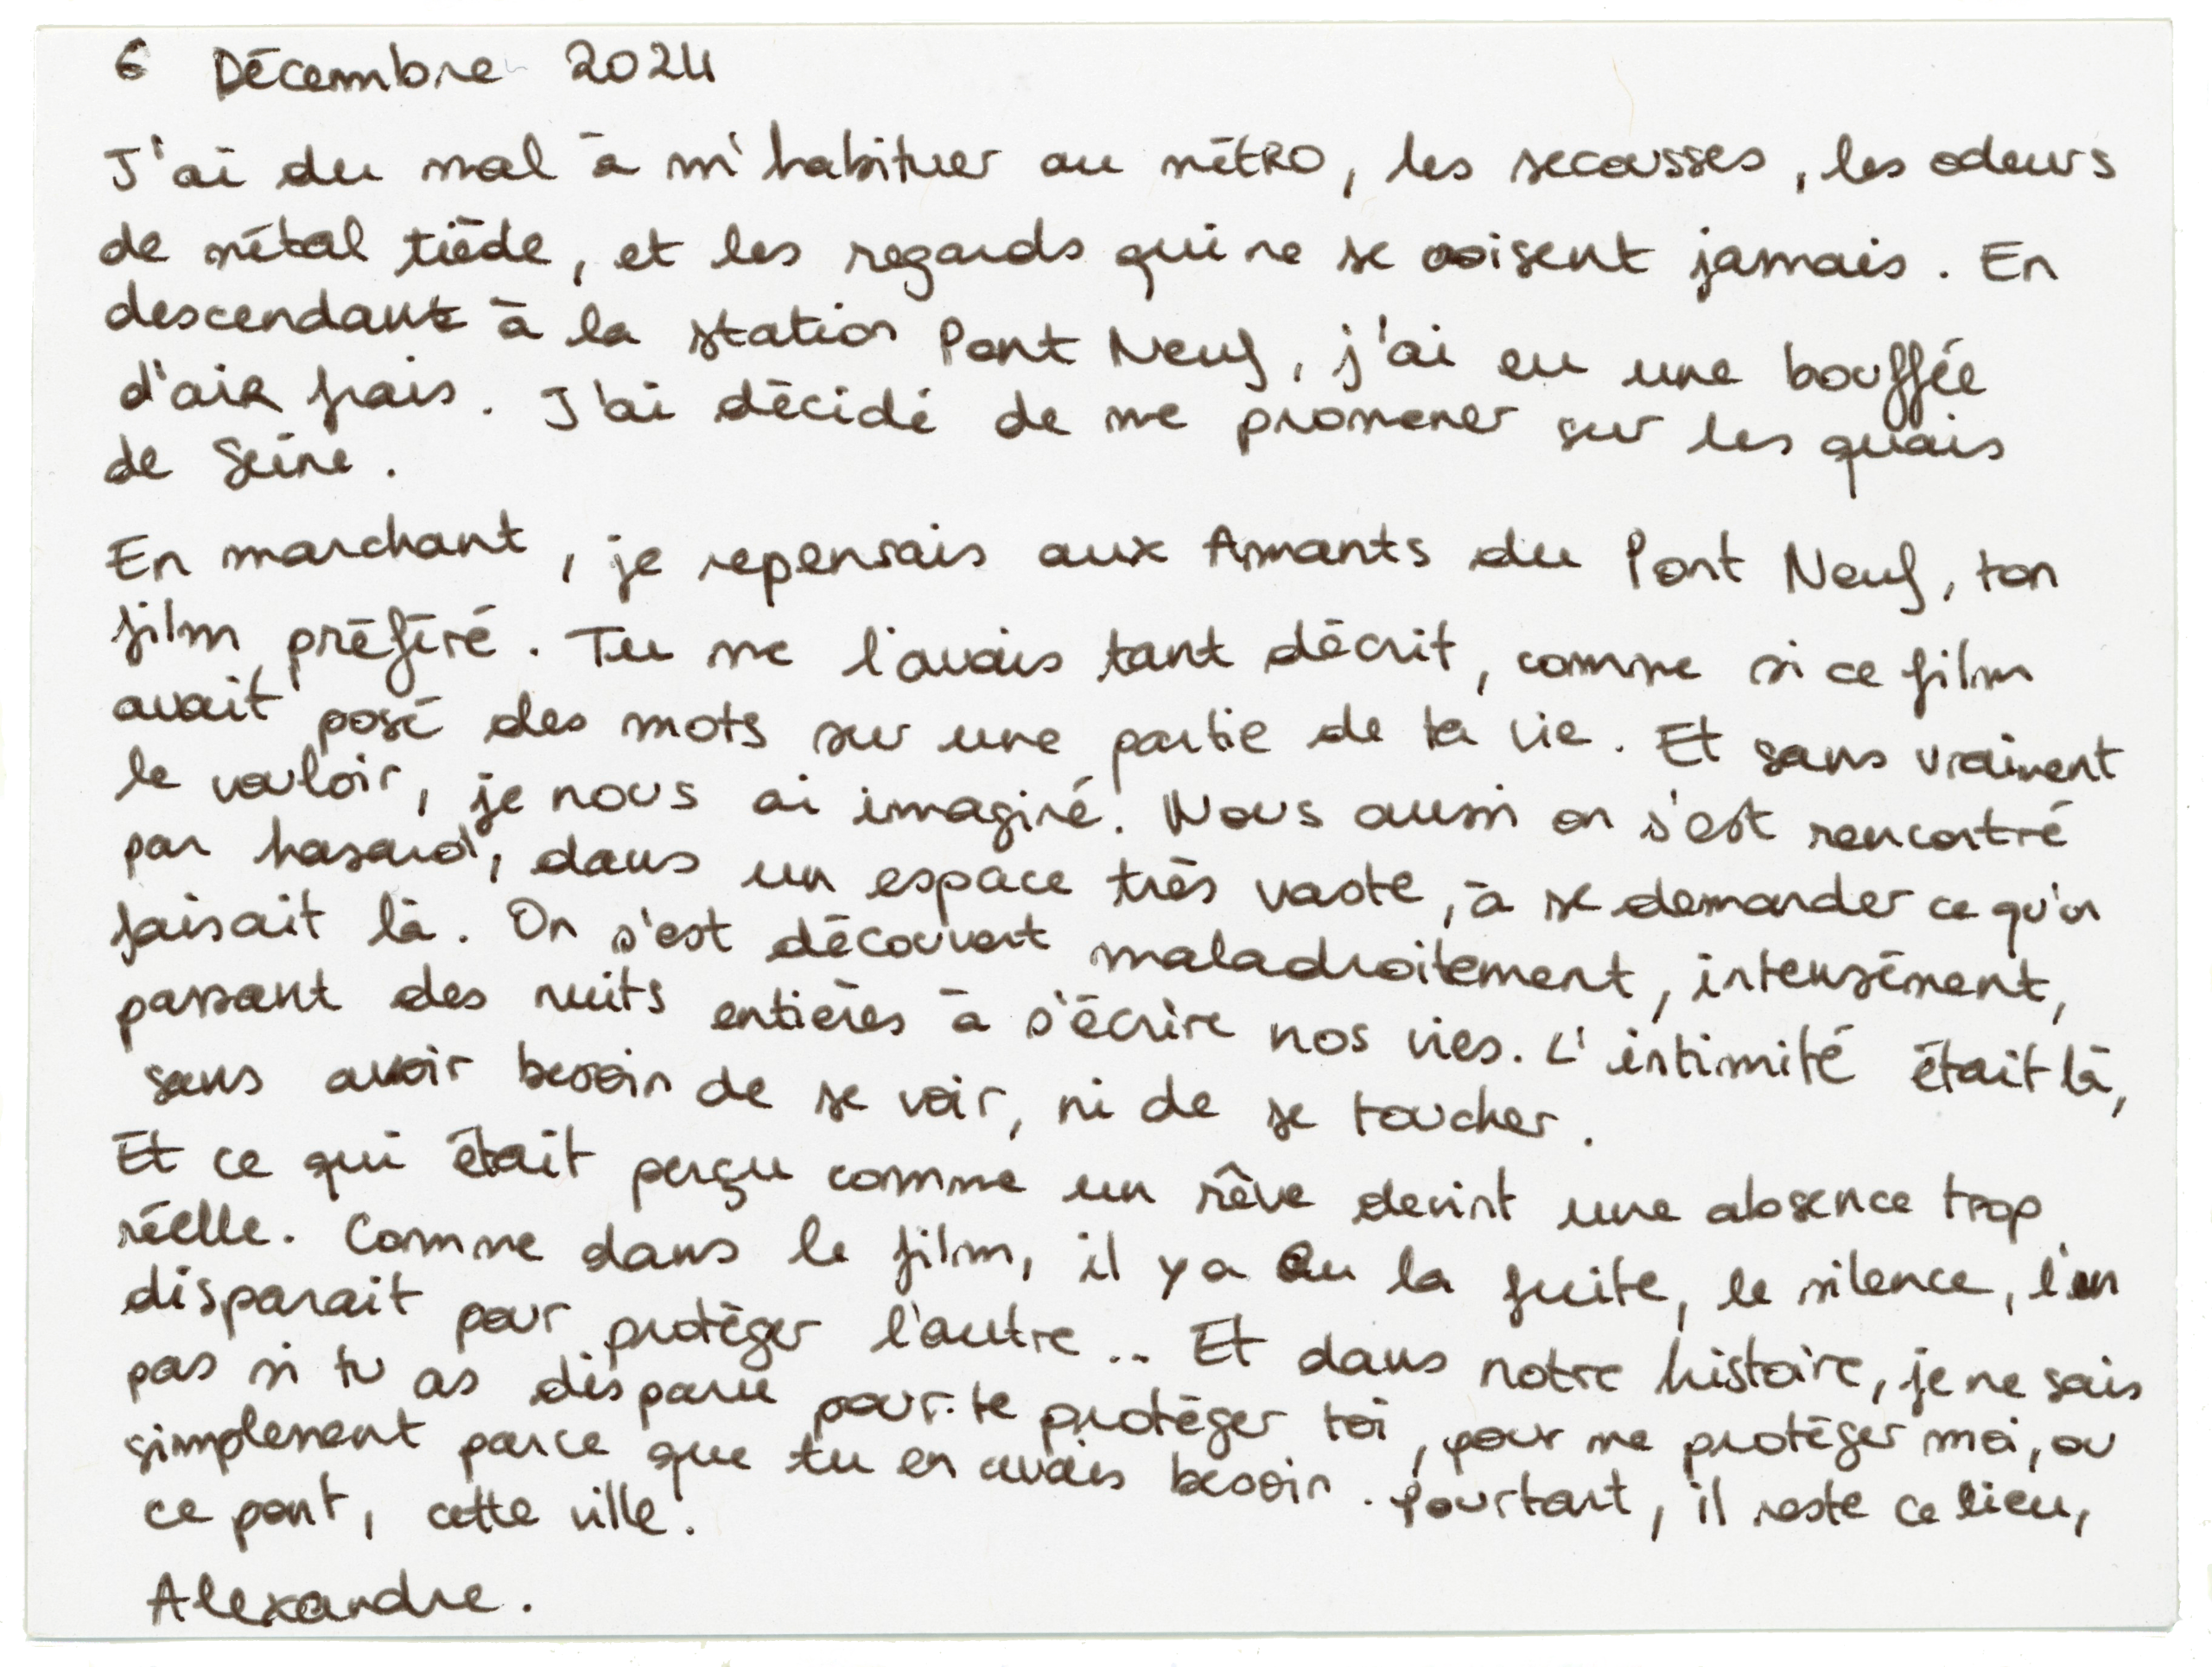 6 Décembre 2024
J'ai du mal à m'habituer au métro, les secousses, les odeurs
de métal tiède, et les regards qui ne se croisent jamais. En
descendant à la station Pont Neuf, j'ai eu une bouffée
d'air frais. J'ai décidé de me promener sur les quais
de Seine.
En marchant, je repensais aux Amants du Pont Neuf, ton
film préféré. Tu me l'avais tant décrit, comme si ce film
avait posé des mots sur une partie de ta vie. Et sans vraiment
le vouloir, je nous ai imaginé. Nous aussi on s'est rencontré
par hasard, dans un espace très vaste, à se demander ce qu'on
faisait là. On s'est découvert maladroitement, intensément,
passant des nuits entières à s'écrire nos vies. L'intimité était là,
sans avoir besoin de se voir, ni de se toucher.
Et ce qui était perçu comme un rêve devint une absence trop
réelle. Comme dans le film, il y a eu la fuite, le silence, l'un
disparait pour protéger l'autre .. Et dans notre histoire, je ne sais
pas si tu as disparu pour te protéger toi, pour me protéger moi, ou
simplement parce que tu en avais besoin. Pourtant, il reste ce lieu,
ce pont, cette ville.
Alexandre.